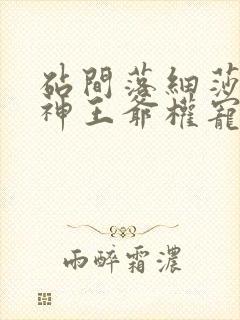 砧間落細莎
神王爺權寵
雨醉霜濃